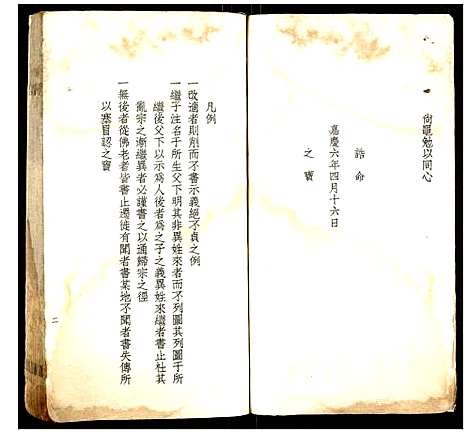 尙黽勉以同心
誥命
嘉慶六年四月十六日
之寶
凡例
一改適者則削而不書示義絕不貞之例
一繼子注名于所生父下明其非異姓來者而不列圖其列圖于所
繼後父下以示爲人後者爲之子之義異姓來繼者書止杜其
亂宗之漸繼異者必謹書之以通歸宗之徑
一無後者從佛老者皆書止遷徙有聞者書某地不聞者書失傳所
以塞冒認之竇
二